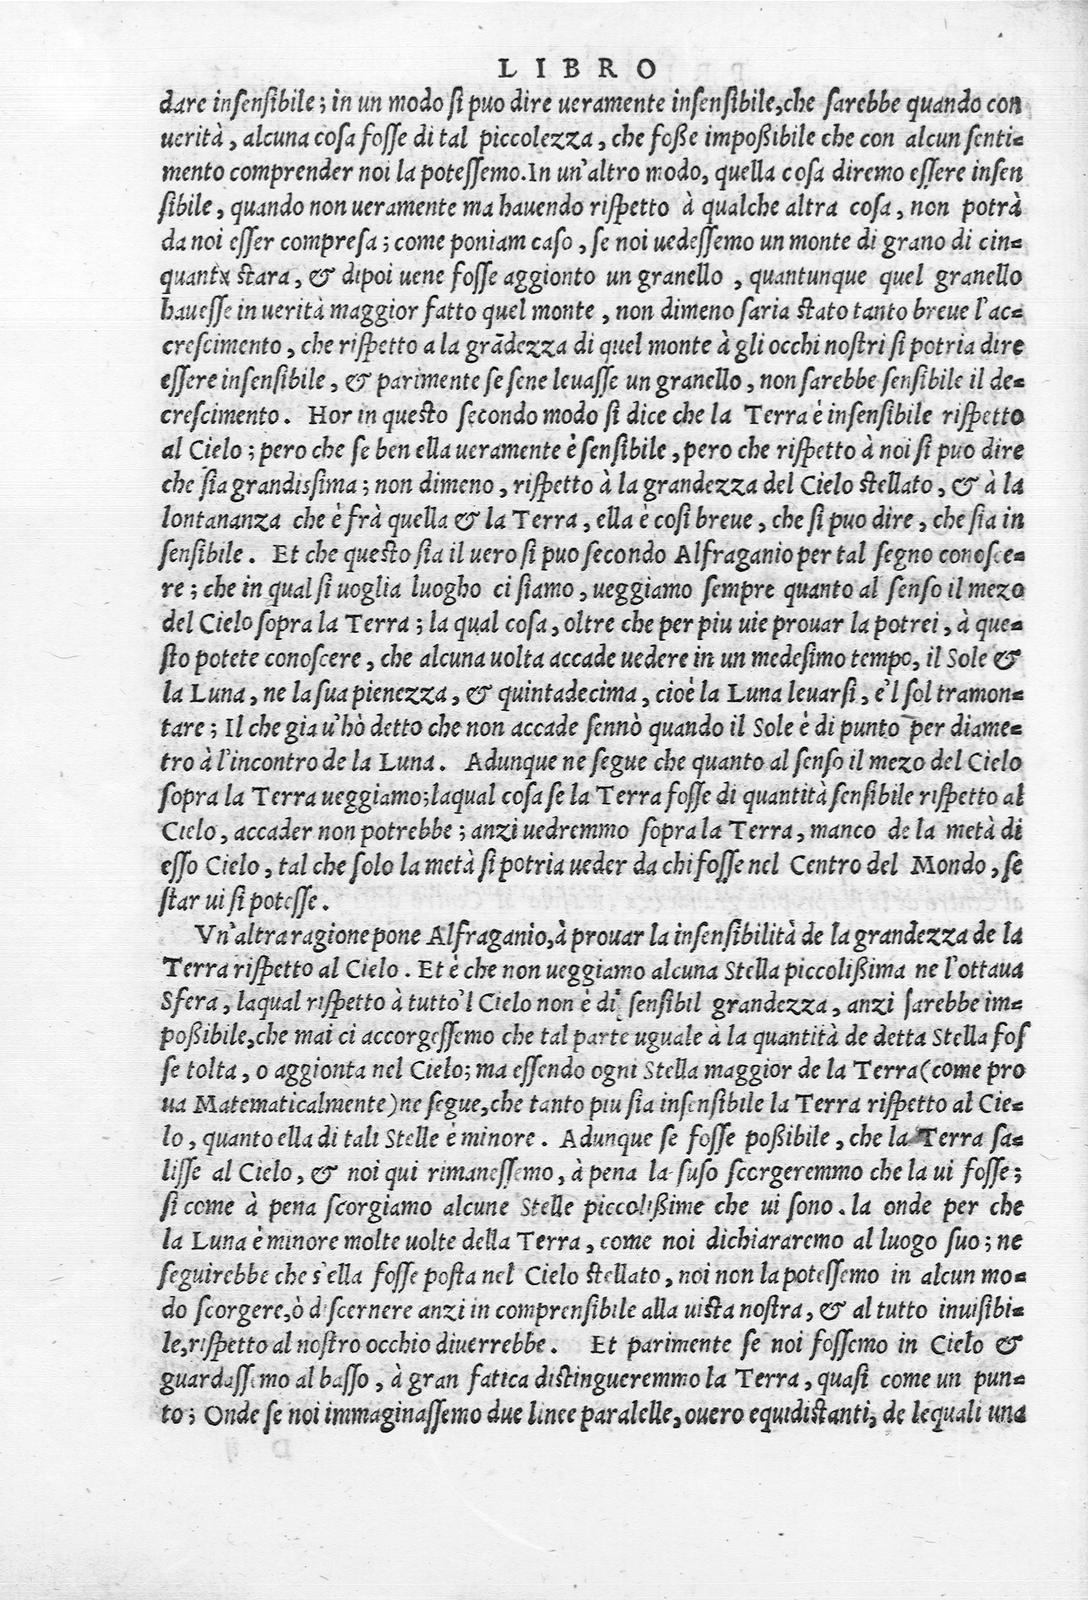 LIBRO
dare insensibile; in un modo si puo dire ueramente insensibile, che sarebbe quando con
uerità, alcuna cosa fosse di tal piccolezza, che foße impoßibile che con alcun senti=
mento comprender noi la potessemo. In un'altro modo, quella cosa diremo essere insen
sibile, quando non ueramente ma hauendo rispetto à qualche altra cosa, non potrà
da noi esser compresa; come poniam caso, se noi uedessemo un monte di grano di cin=
quanta stara, & dipoi uene fosse aggionto un granello, quantunque quel granello
hauesse in uerità maggior fatto quel monte, non dimeno saria stato tanto breue l'ac=
crescimento, che rispetto a la grādezza di quel monte à gli occhi nostri si potria dire
essere insensibile, & parimente se sene leuasse un granello, non sarebbe sensibile il de=
crescimento. Hor in questo secondo modo si dice che la Terra è insensibile rispetto
al Cielo; pero che se ben ella ueramente è sensibile, pero che rispetto à noi si puo dire
che sia grandissima; non dimeno, rispetto à la grandezza del Cielo stellato, & à la
lontananza che è frà quella & la Terra, ella è cosi breue, che si puo dire, che sia in
sensibile. Et che questo sia il uero si puo secondo Alfraganio per tal segno conosce=
re; che in qual si uoglia luogho ci siamo, ueggiamo sempre quanto al senso il mezo
del Cielo sopra la Terra; la qual cosa, oltre che per piu uie prouar la potrei, à que=
sto potete conoscere, che alcuna uolta accade uedere in un medesimo tempo, il Sole &
la Luna, ne la sua pienezza, & quintadecima, cioè la Luna leuarsi, e'l sol tramon=
tare; Il che gia u'hò detto che non accade sennò quando il Sole è di punto per diame=
tro à l'incontro de la Luna. Adunque ne segue che quanto al senso il mezo del Cielo
sopra la Terra ueggiamo; laqual cosa se la Terra fosse di quantità sensibile rispetto al
Cielo, accader non potrebbe; anzi uedremmo sopra la Terra, manco de la metà di
esso Cielo, tal che solo la metà si potria ueder da chi fosse nel Centro del Mondo, se
star ui si potesse.
Vn'altra ragione pone Alfraganio, à prouar la insensibilità de la grandezza de la
Terra rispetto al Cielo. Et è che non ueggiamo alcuna Stella piccolißima ne l'ottaua
Sfera, laqual rispetto à tutto'l Cielo non è di sensibil grandezza, anzi sarebbe im=
poßibile, che mai ci accorgessemo che tal parte uguale à la quantità de detta Stella fos
se tolta, o aggionta nel Cielo; ma essendo ogni Stella maggior de la Terra (come pro
ua Matematicalmente) ne segue, che tanto piu sia insensibile la Terra rispetto al Cie=
lo, quanto ella di tali Stelle è minore. Adunque se fosse poßibile, che la Terra sa=
lisse al Cielo, & noi qui rimanessemo, à pena la suso scorgeremmo che la ui fosse;
si come à pena scorgiamo alcune Stelle piccolißime che ui sono. la onde per che
la Luna è minore molte uolte della Terra, come noi dichiararemo al luogo suo; ne
seguirebbe che s'ella fosse posta nel Cielo stellato, noi non la potessemo in alcun mo=
do scorgere, ò discernere anzi in comprensibile alla uista nostra, & al tutto inuisibi=
le, rispetto al nostro occhio diuerrebbe. Et parimente se noi fossemo in Cielo &
guardassemo al basso, à gran fatica distingueremmo la Terra, quasi come un pun=
to; Onde se noi immaginassemo due linee paralelle, ouero equidistanti, de lequali una